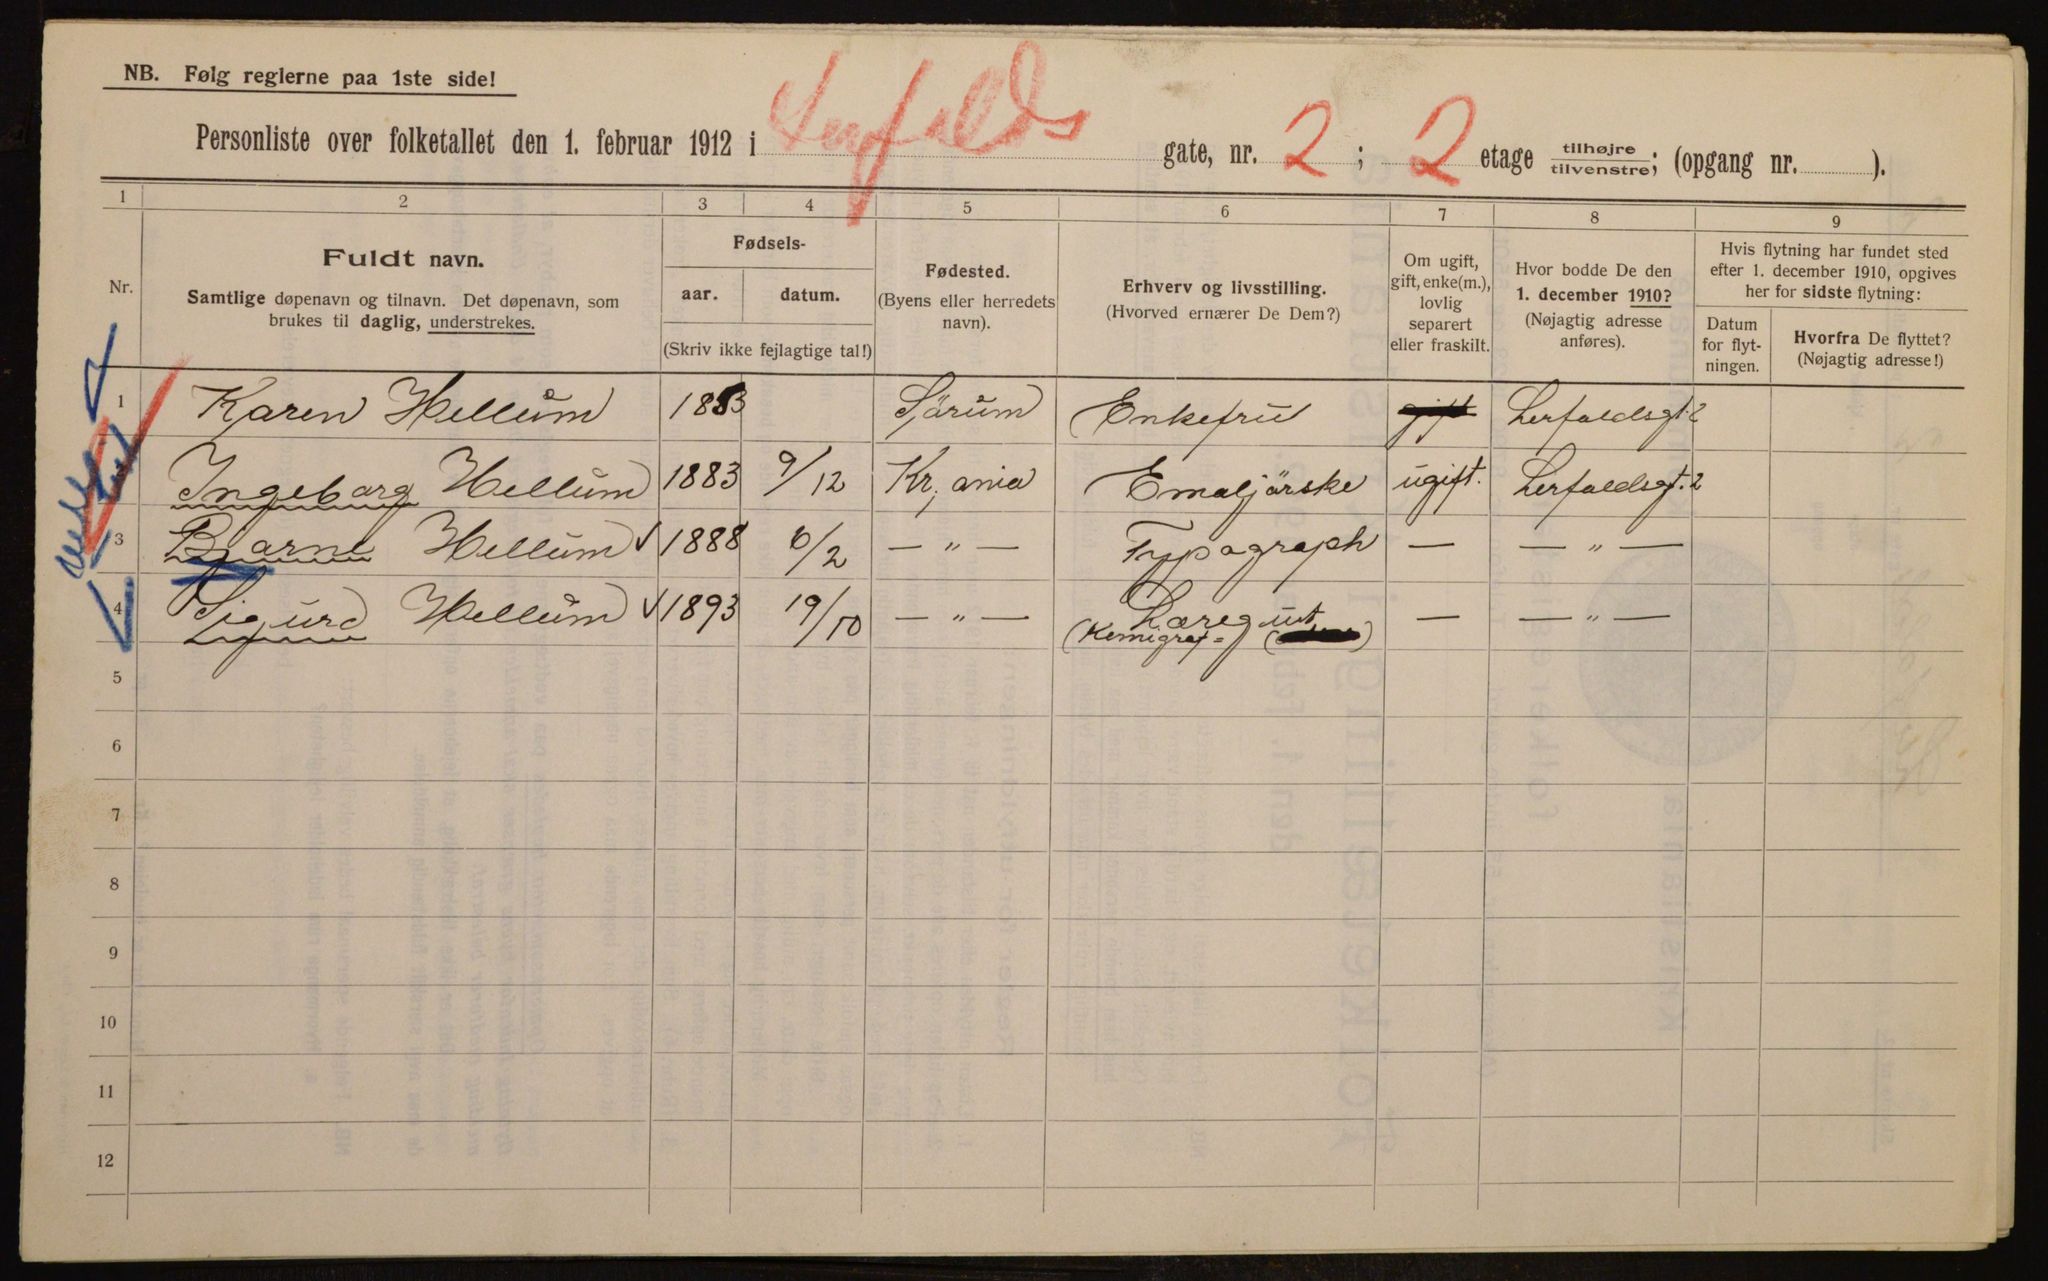 NB. Følg reglerne paa 1ste side!
Personliste over folketallet den 1. februar 1912 i Lerfalds gate, nr. 2 ; 2 etage tilhøjre/tilvenstre; (opgang nr. ).
1 2 3 4 5 6 7 8 9
Nr.
Fuldt navn.
Samtlige døpenavn og tilnavn. Det døpenavn, som
brukes til daglig, understrekes.
Fødsels-
aar. datum.
(Skriv ikke fejlagtige tal!)
Fødested.
(Byens eller herredets
navn).
Erhverv og livsstilling.
(Hvorved ernærer De Dem?)
Om ugift,
gift, enke(m.),
lovlig
separert
eller fraskilt.
Hvor bodde De den
1. december 1910?
(Nøjagtig adresse
anføres).
Hvis flytning har fundet sted
efter 1. december 1910, opgives
her for sidste flytning:
Datum
for flyt-
ningen.
Hvorfra De flyttet?
(Nøjagtig adresse!)
1 Karen Hellum 1853 Sørum Enkefru gift Lerfaldsgt. 2
2 Ingeborg Hellum 1883 9/12 Kr,ania Emaljörske ugift. Lerfaldsgt. 2
3 Bjarne Hellum √ 1888 6/2 — " — Typograph — — " —
4 Sigurd Hellum √ 1893 19/10 — " — Læregut — — " —
(Kemigraf=
5
6
7
8
9
10
11
12